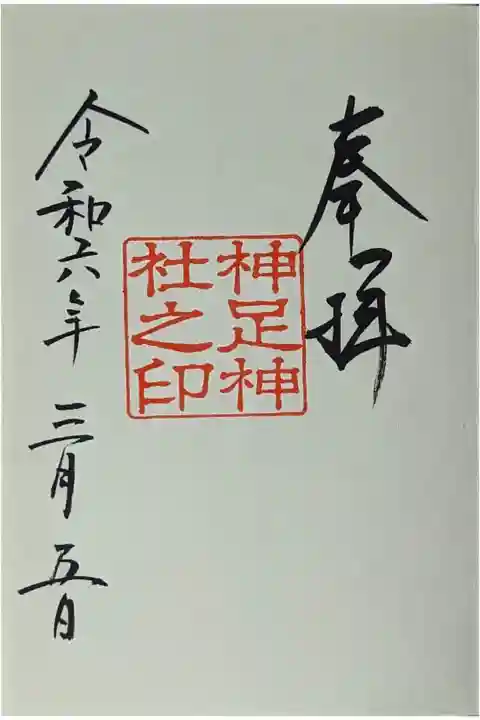 奉拝
神足神
社之印
令和六年 三月 五日